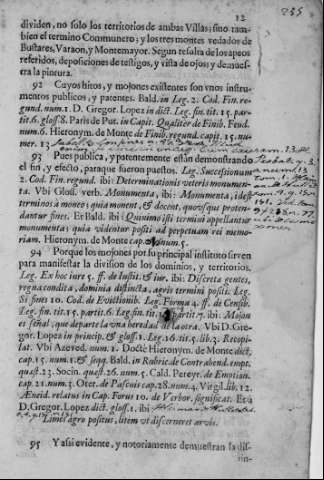 12
255
dividen, no solo los territorios de ambas Villas; sino tam-
bien el termino Communero; y los tres montes vedados de
Bustares, Varaon, y Montemayor. Segun resulta de los apeos
referidos, deposiciones de testigos, y vista de ojos y demues-
tra la pintura.
92 Cuyos hitos, y mojones existentes son vnos instru-
mentos publicos, y patentes. Bald. in Leg. 2. Cod. Fin. re-
gund. num. 1. D. Gregor. Lopez in dict. Leg. fin. tit. 15. par-
tit. 6. gloss. 8. Paris de Put. in Capit. Qualiter de Finib. Feud.
num. 6. Hieronym. de Monte de Finib. regund. capit. 15. nu-
mer. 13
93 Pues publica, y patentemente están demonstrando
el fin, y efecto, paraque fueron puestos. Leg. Successionum
2. Cod. Fin. regund. ibi: Determinationis veteris monumen-
ta. Vbi Glos. verb. Monumenta, ibi: Monumenta, idest
terminos a moneo; quia monent, & docent, quousque proten-
dantur fines. Et Bald. ibi: Quinimo isti termini appellantur
monumenta; quia videntur positi ad perpetuam rei memo-
riam. Hieronym. de Monte cap. num. 5.
94 Porque los mojones por su principal instituto sirven
para manifestar la division de los dominios, y territorios.
Leg. Ex hoc iure 5. ff. de Iustit. & iur. ibi: Discreta gentes,
regna condita, dominia distincta, agris termini positi. Leg.
Si fines 10. Cod. de Evictionib. Leg. Forma 4. ff. de Censib.
Leg. fin. tit. 15. partit. 6. Leg. fin. tit. partit 7. ibi: Mojon
es señal, que departe la vna heredad de la otra. Vbi D. Gre-
gor. Lopez in princip. & gloss. 1. Leg. 16. tit. 5. lib. 3. Recopi-
lat. Vbi Azeved. num. 1. Docte Hieronym. de Monte dict.
cap. 15. num. 1. & seqq. Bald. in Rubric. de Contrahend. empt.
quæst. 23. Socin. quæst. 26. num. 5. Cald. Pereyr. de Emption.
cap. 21. num. 5. Oter. de Pascuis cap. 28. num. 4. Virgil. lib. 12.
Æneid. relatus in Cap. Forus 10. de Verbor. significat. Et a
D. Gregor. Lopez dict. gloss. 1. ibi
Limes agro positus, litem vt discerneret arvis.
95 Y assi evidente, y notoriamente demuestran la dis-
tin-